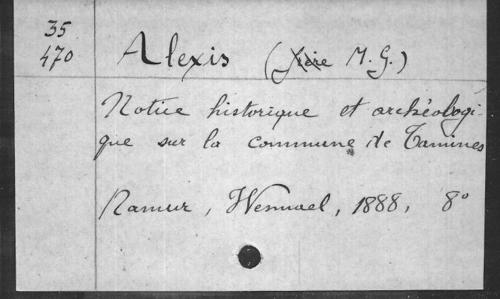 35
470
Alexis (frère M. G.)
Notice historique et archéologi-
que sur la commune de Tamines
Namur, Wesmael, 1888, 8°